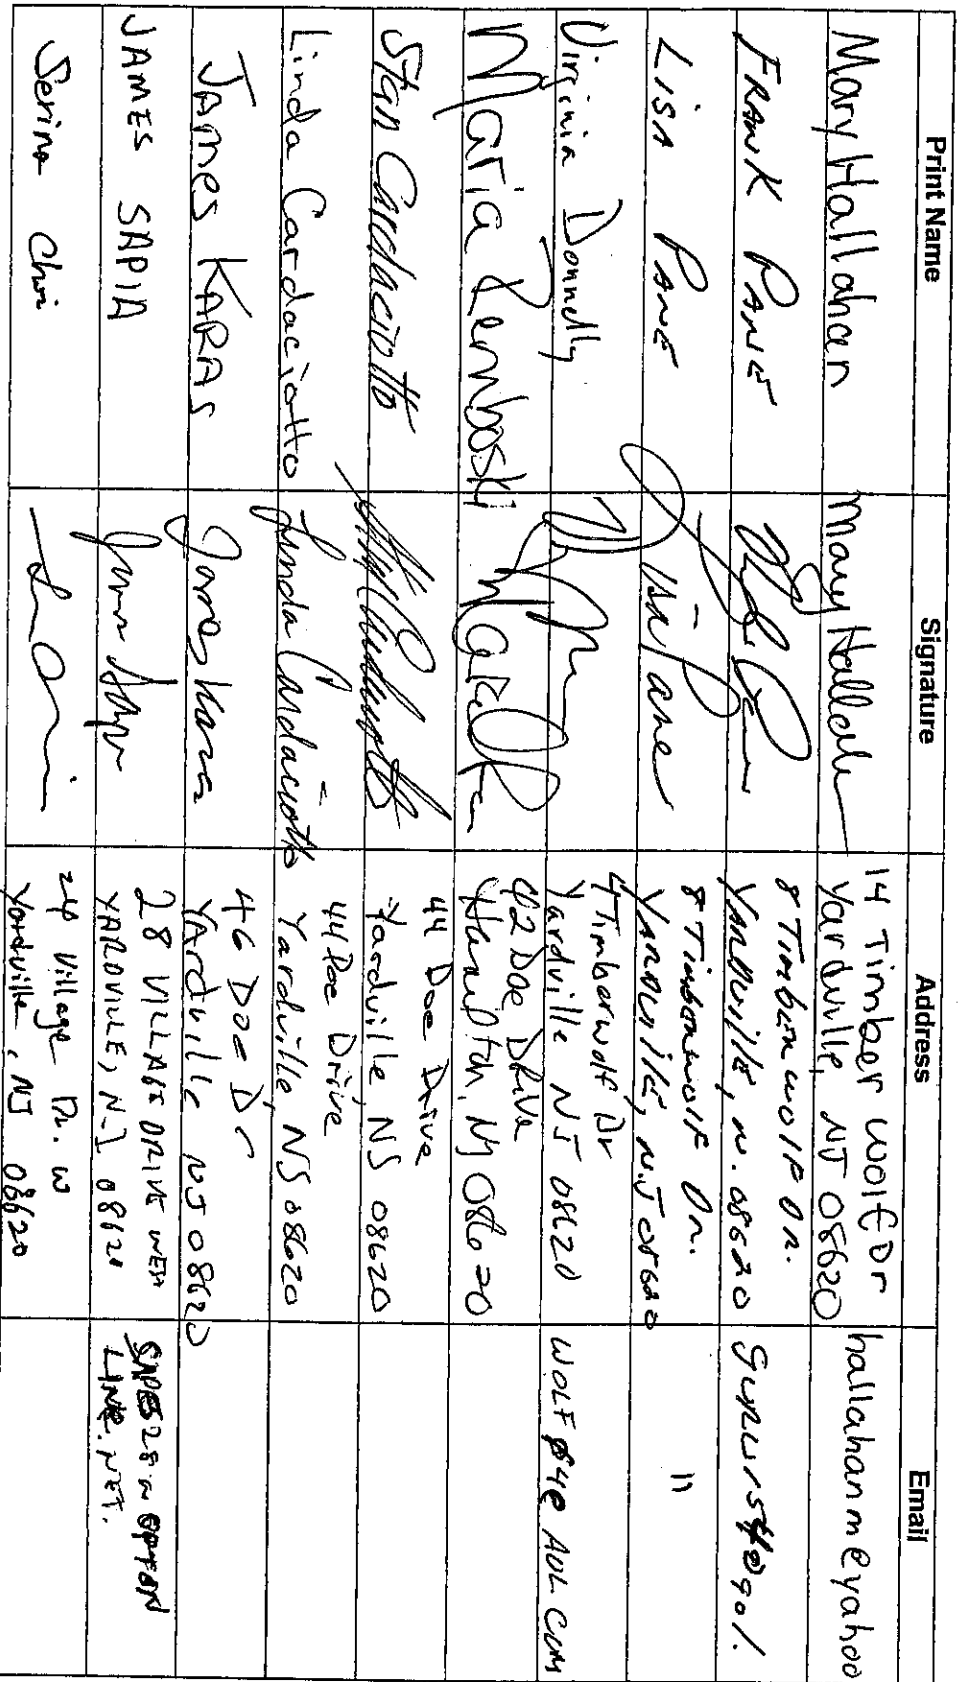 Print Name Signature Address Email
Mary Hallahan Mary Hallahan 14 Timber wolf Dr hallahanm@yahoo
Yardville, NJ 08620
FRANK PANE 8 Timberwolf Dr.
YARDVILLE, N. 08620
LISA PANE Lisa Pane 8 Timberwolf Dr. "
YARDVILLE, N.J 08620
Virginia Donnelly 4 Timberwolf Dr
Yardville NJ 08620 AOL COM
Maria Zemboski 42 Doe Drive
NJ 08620
Stan Cardaciotto 44 Doe Drive
Yardville, NJ 08620
Linda Cardaciotto Linda Cardaciotto 44 Doe Drive
Yardville, NJ 08620
JAMES KARAS James Karas 46 Doe Dr
YArdville NJ 08620
JAMES SAPIA 28 VILLAGE DRIVE WEST
YARDVILLE, N.J 08620 LINE.NET.
Serina Choi 24 Village Dr. W
Yardville, NJ 08620